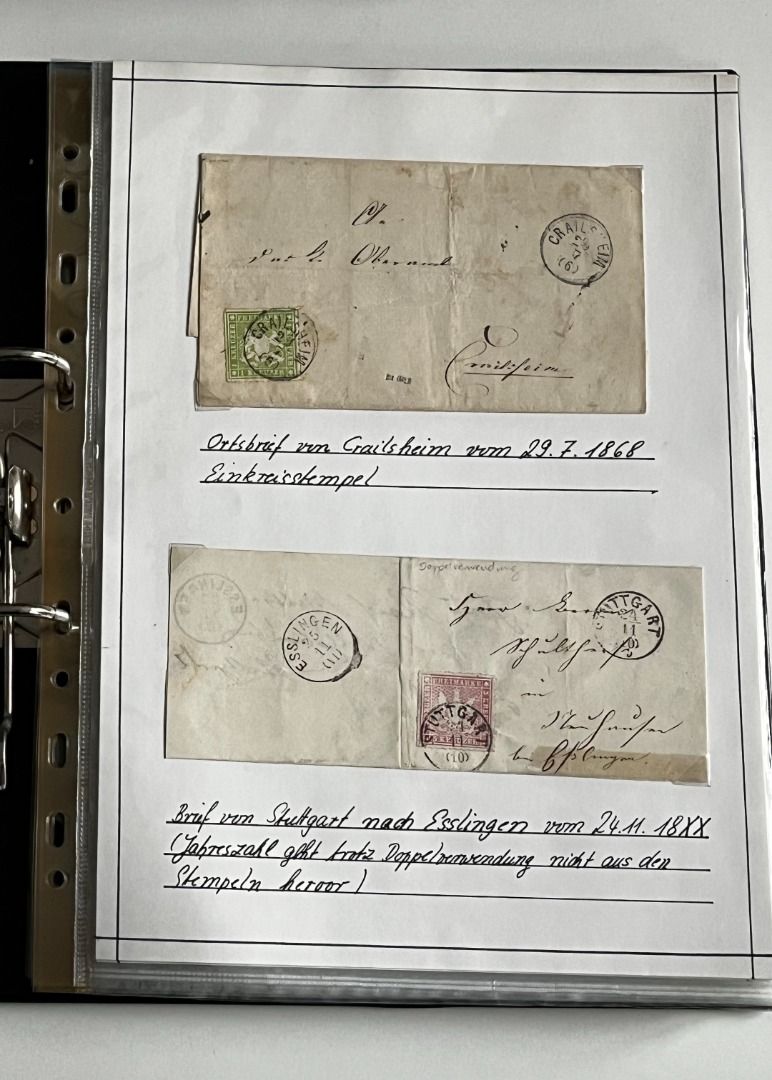 An
das k. Oberamt
CRAILSHEIM
29
7
(6)
FREIMARKE
1 KREUZER
CRAILSHEIM
Crailsheim
Ortsbrief von Crailsheim vom 29.7.1868
Einkreisstempel
Doppelverwendung
ESSLINGEN
ESSLINGEN
25
11
(11)
Herr
STUTTGART
24
11
(10)
Schultheiß
in
FREIMARKE
STUTTGART
(10)
Neuhausen
bei Esslingen
Brief von Stuttgart nach Esslingen vom 24.11.18XX
(Jahreszahl geht trotz Doppelverwendung nicht aus den
Stempeln hervor)